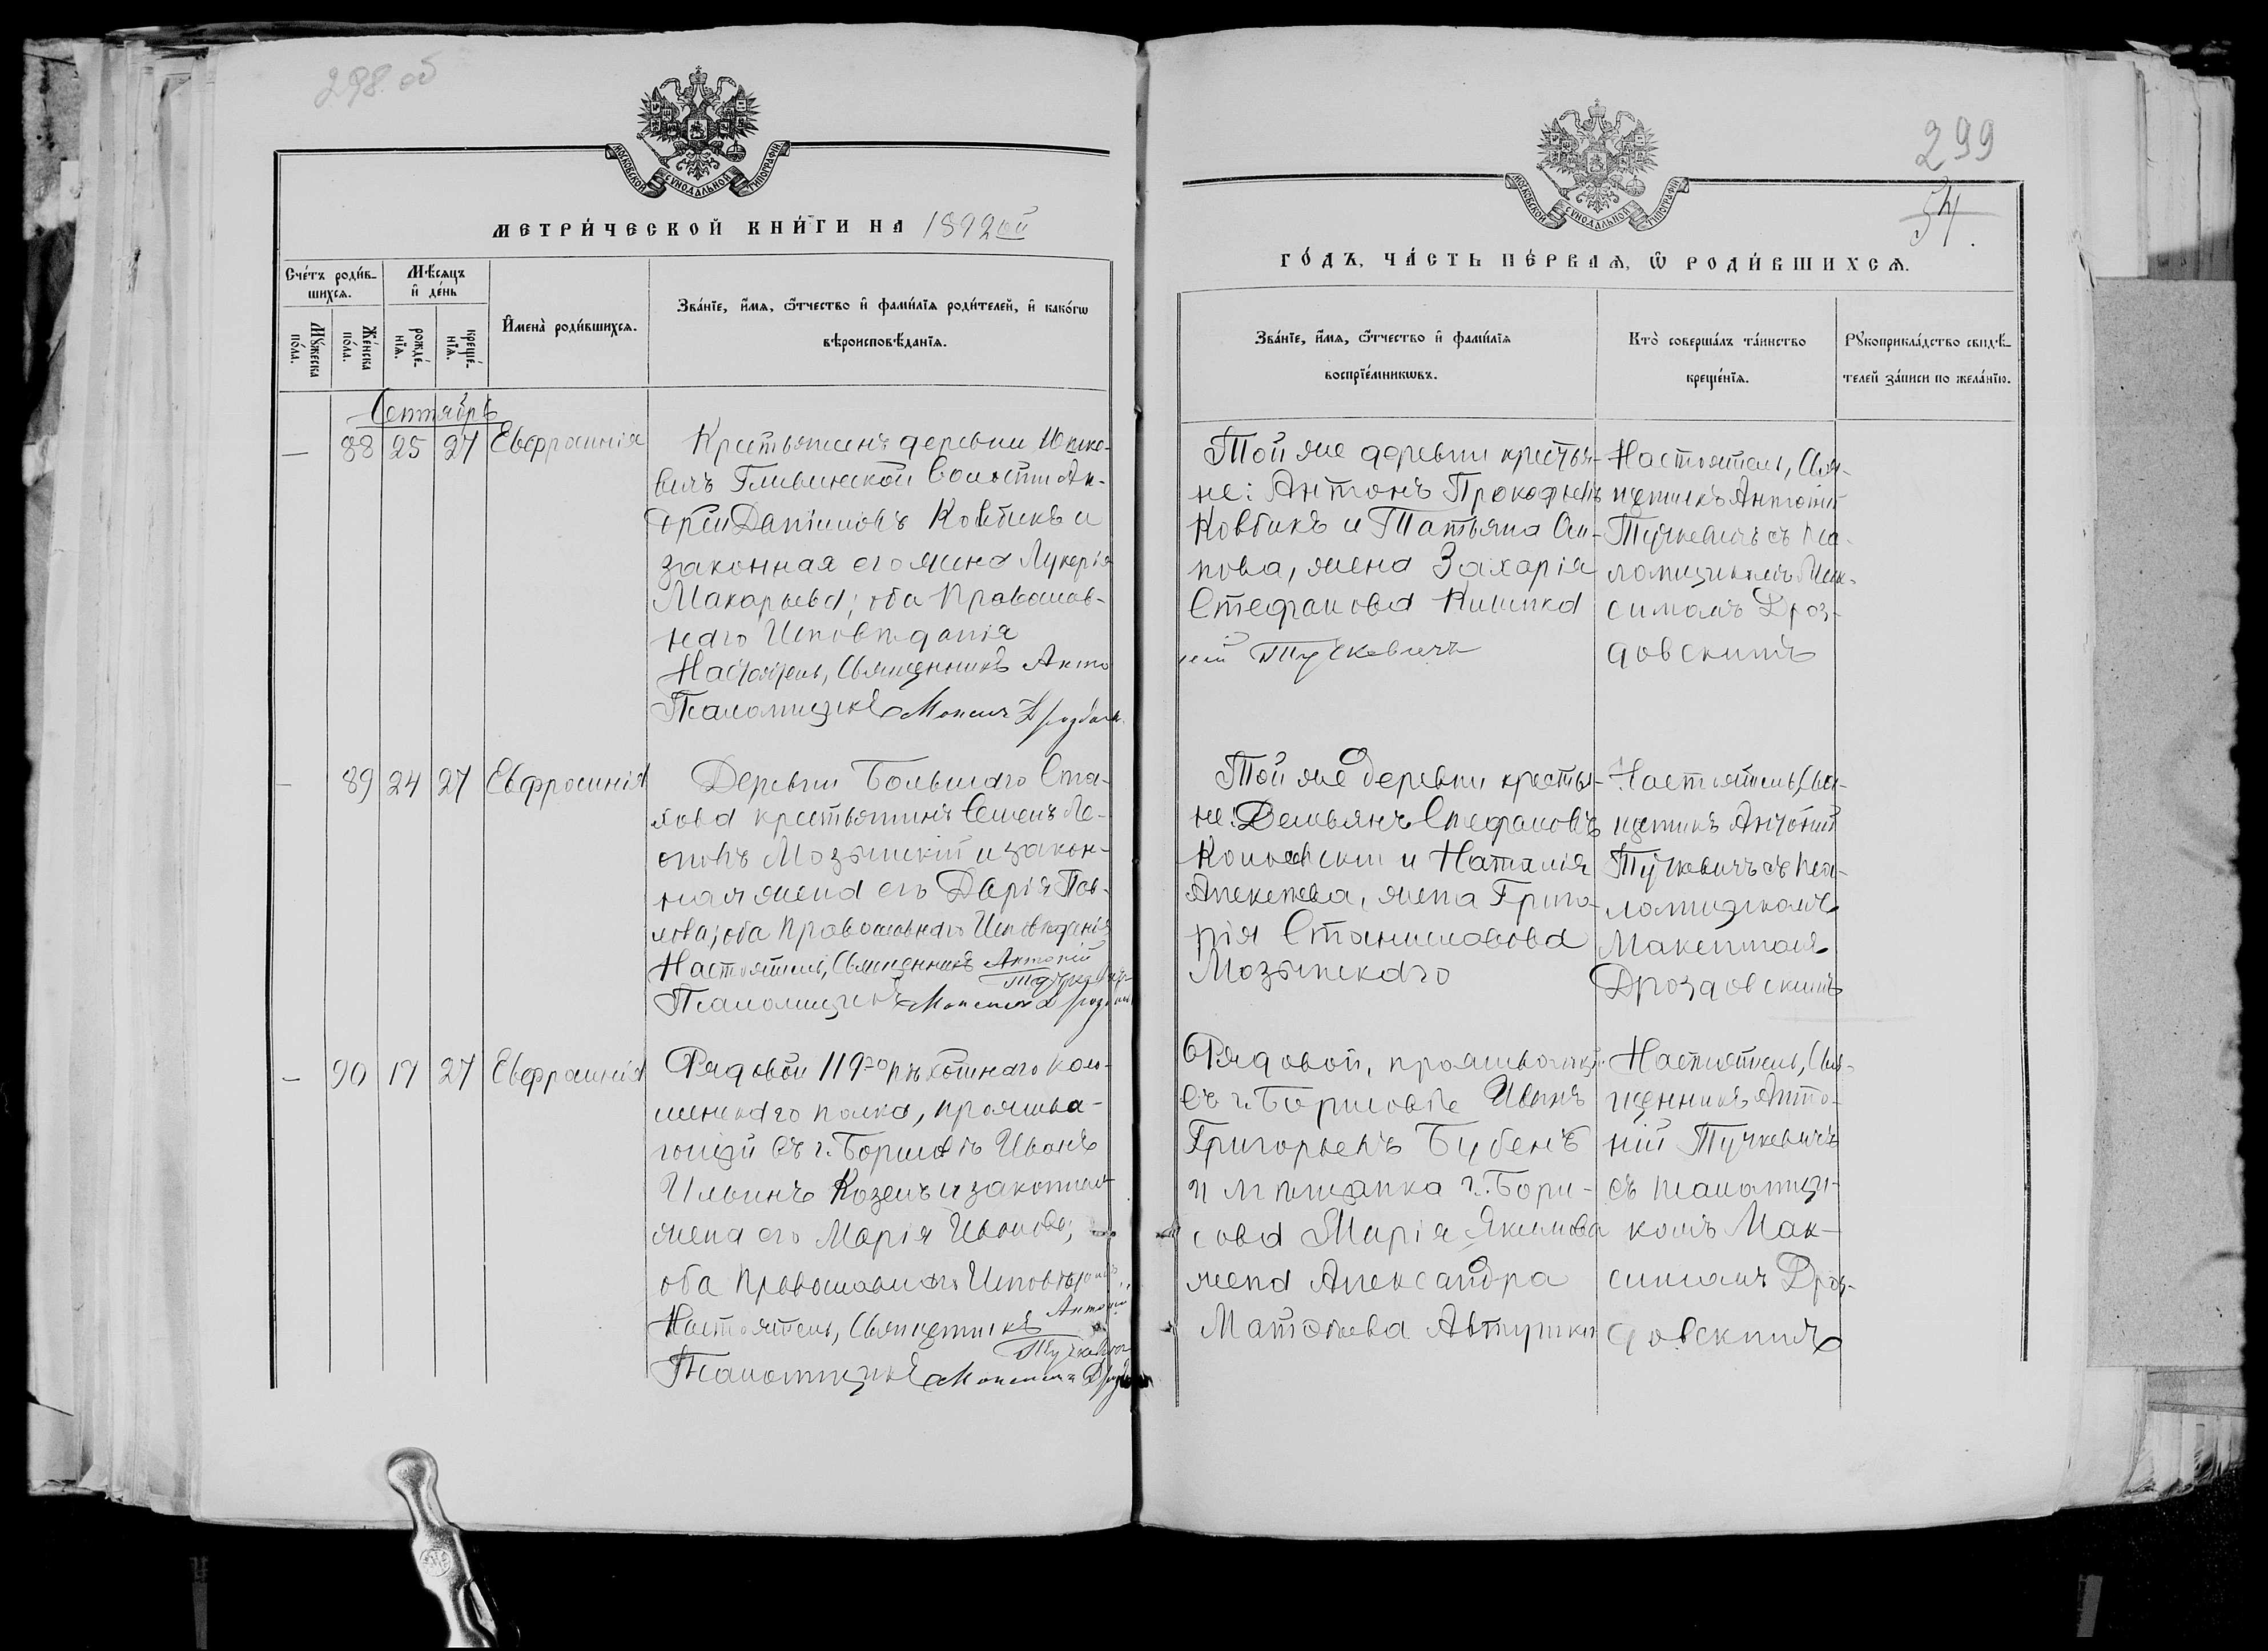 298 об
МОСКОВСКОЙ СУНОДАЛЬНОЙ ТИПОГРАФІИ
МЕТРИ́ЧЕСКОЙ КНИ́ГИ НА 1892ой
Сче́тъ роди́в-
шихсѧ.
Мѣ́сѧцъ
и҆ де́нь
Мꙋ́жеска
по́ла.
Же́нска
по́ла.
рожде́-
нїѧ.
креще́-
нїѧ.
И҆мена̀ роди́вшихсѧ.
Зва́нїе, и҆́мѧ, ѻ҆́тчество и҆ фами́лїѧ роди́телей, и҆ како́гѡ
вѣроисповѣ́данїѧ.
Сентябрь
— 88 25 27 Евфросинія
Крестьянинъ деревни Юшке-
вичъ Гливинской волости Ан-
дрей Даніиловъ Ковбикъ и
законная его жена Лукерія
Макарьева; оба Православ-
наго Исповѣданія
Настоятель, Священникъ Анто
Псаломщикъ Максимъ Дроздовск
— 89 24 27 Евфросинія
Деревни Большаго Ста-
хова крестьянинъ Семенъ Ле-
оновъ Мозынскій и закон-
ная жена его Дарія Пав-
лова; оба Православнаго Исповѣданія
Настоятель, Священникъ Антоній
Тучкевичъ
Псаломщикъ Максимъ Дроздовскій
— 90 17 27 Евфросинія
Рядовой 119го пѣхотнаго Коло-
менскаго полка, прожива-
ющій въ г. Борисовѣ Иванъ
Ильинъ Козелъ и законная
жена его Марія Иванова;
оба Православнаго Исповѣданія
Настоятель, Священникъ Антоній
Тучкевичъ
Псаломщикъ Максимъ Дроздов
299
54.
МОСКОВСКОЙ СУНОДАЛЬНОЙ ТИПОГРАФІИ
ГО́ДЪ, ЧА́СТЬ ПЕ́РВАѦ, Ѡ҆ РОДИ́ВШИХСѦ.
Зва́нїе, и҆́мѧ, ѻ҆́тчество и҆ фами́лїѧ
воспрїе́мникѡвъ.
Кто̀ соверша́лъ та́инство
креще́нїѧ.
Рꙋкоприкла́дство свидѣ́-
телей за́писи по жела́нїю.
Той же деревни крестья-
не: Антонъ Прокофьевъ
Ковбикъ и Татьяна Он-
пова, жена Захарія
Стефанова Кишика
ній Тучкевичъ
Настоятель, Свя-
щенникъ Антоній
Тучкевичъ съ пса-
ломщикомъ Мак-
симомъ Дроз-
довскимъ
Той же деревни крестья-
не: Демьянъ Стефановъ
и Наталія
Алексеева, жена Григо-
рія Станиславова
Мозынскаго
Настоятель, Свя-
щенникъ Антоній
Тучкевичъ съ пса-
ломщикомъ
Максимомъ
Дроздовскимъ
Рядовой, проживающій
въ г. Борисовѣ Иванъ
Григорьевъ Бубенъ
и мѣщанка г. Бори-
сова Марія Якимова
жена Александра
Матѳѣева Автушки
Настоятель, Свя-
щенникъ Анто-
ній Тучкевичъ
съ псаломщи-
комъ Мак-
симомъ Дроз-
довскимъ